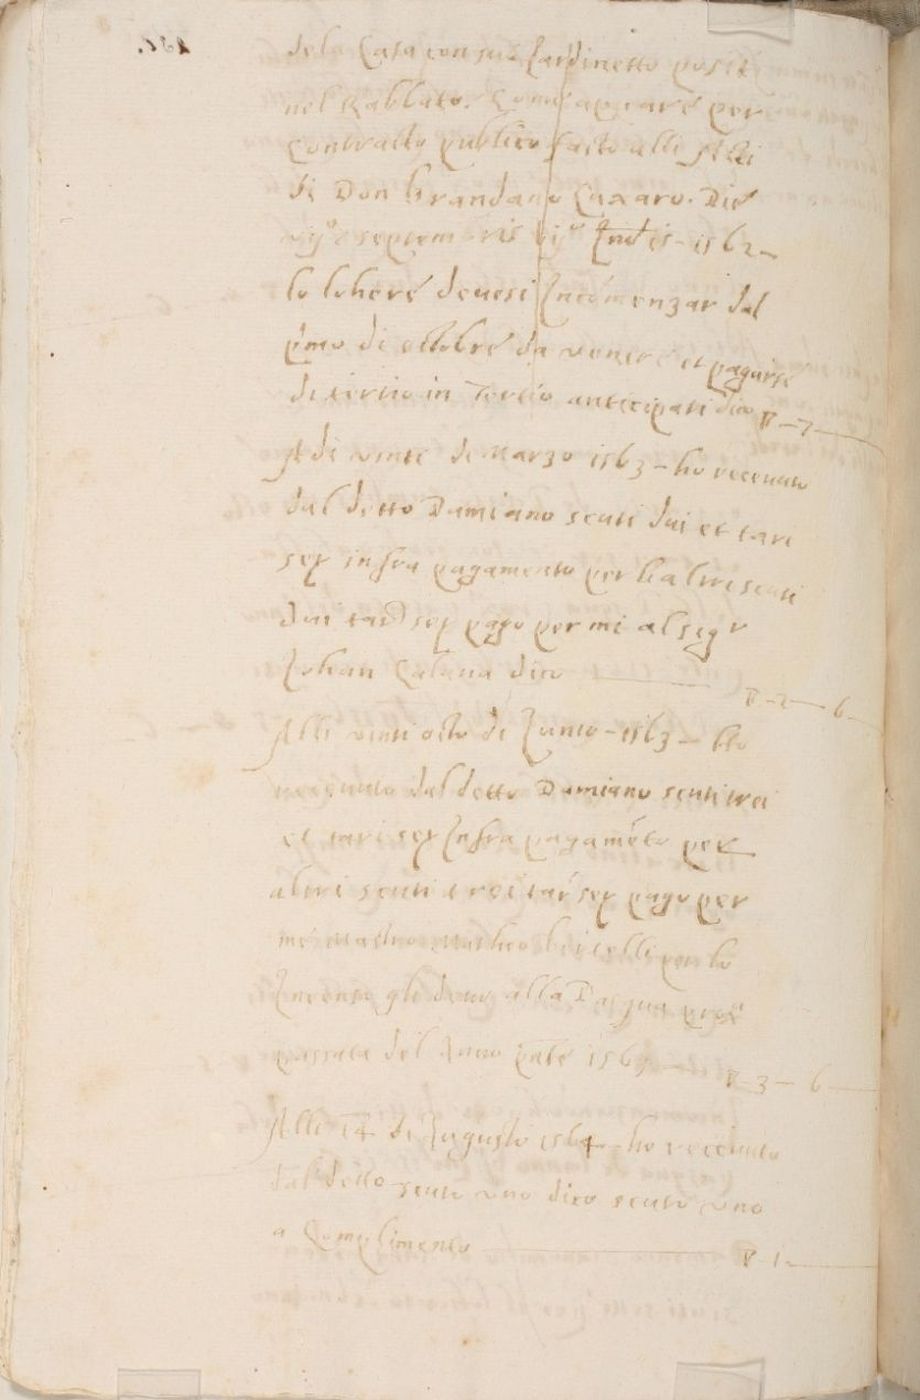 dela Casa con suo Jardinetto posit
nel Rabbato. Come appare per
Contratto publico facto alli Atti
di Don brandano Caxaro. Die
septembris vijᵉ Ind is - 1562 -
lo lohere devesi Incomenzar dal
pmo di ottobre da venere et pagarse
di tertio in Tertio anticipati dico - 7 -
A di vinte de Marzo 1563 - ho receuuto
dal detto Damiano scuti dui et tari
sey infra pagamento per li altri scuti
dui tari sey pago per mi al segr
Johan Calaua dico - 2 - 6
Alli vinti octo di Junio - 1563 - ho
receuuto dal detto Damiano scuti trei
et tari sey Infra pagameto per
altri scuti trei tari sey pago per
me Mastro Matheo per lo
Incenso gli devo alla Pasqua
passata del Anno pnte 156 - 3 - 6
Alli 14 di Augusto 1564 - ho receuuto
dal detto scuto uno dico scuto uno
a Complimento - 1 -